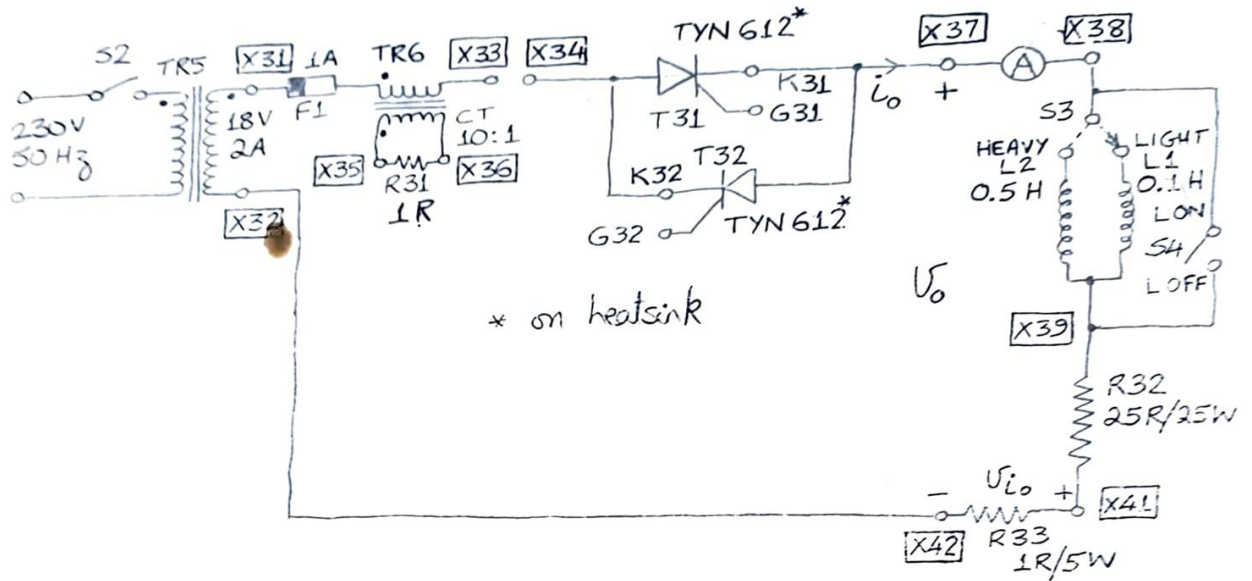 S2
TR5
X31
1A
F1
TR6
X33
X34
TYN 612*
X37
X38
230V
50 Hz
18V
2A
CT
10:1
X35
R31
X36
1R
X32
T31
K31
G31
i₀
+
A
S3
K32
T32
G32
TYN 612*
HEAVY
L2
0.5 H
LIGHT
L1
0.1 H
L ON
S4
L OFF
* on heatsink
V₀
X39
R32
25R/25W
-
Vi₀
+
X41
X42
R33
1R/5W